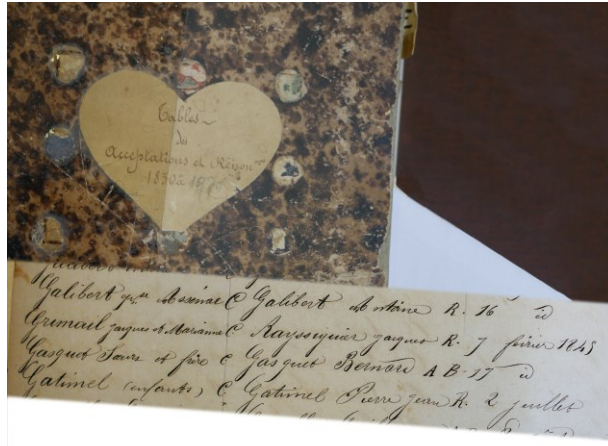 Tables
des
Acceptations et Renon
1830 à
Galibert Arsène C Galibert Antoine R. 16 id
Grimail jacques et Marianne C Rayssiguier jacques R. 7 février 1845
Gasquet Soeurs et frère C Gasquet Bernard A B 17 id
Gatimel (enfants) C Gatimel Pierre jean R. 2 juillet